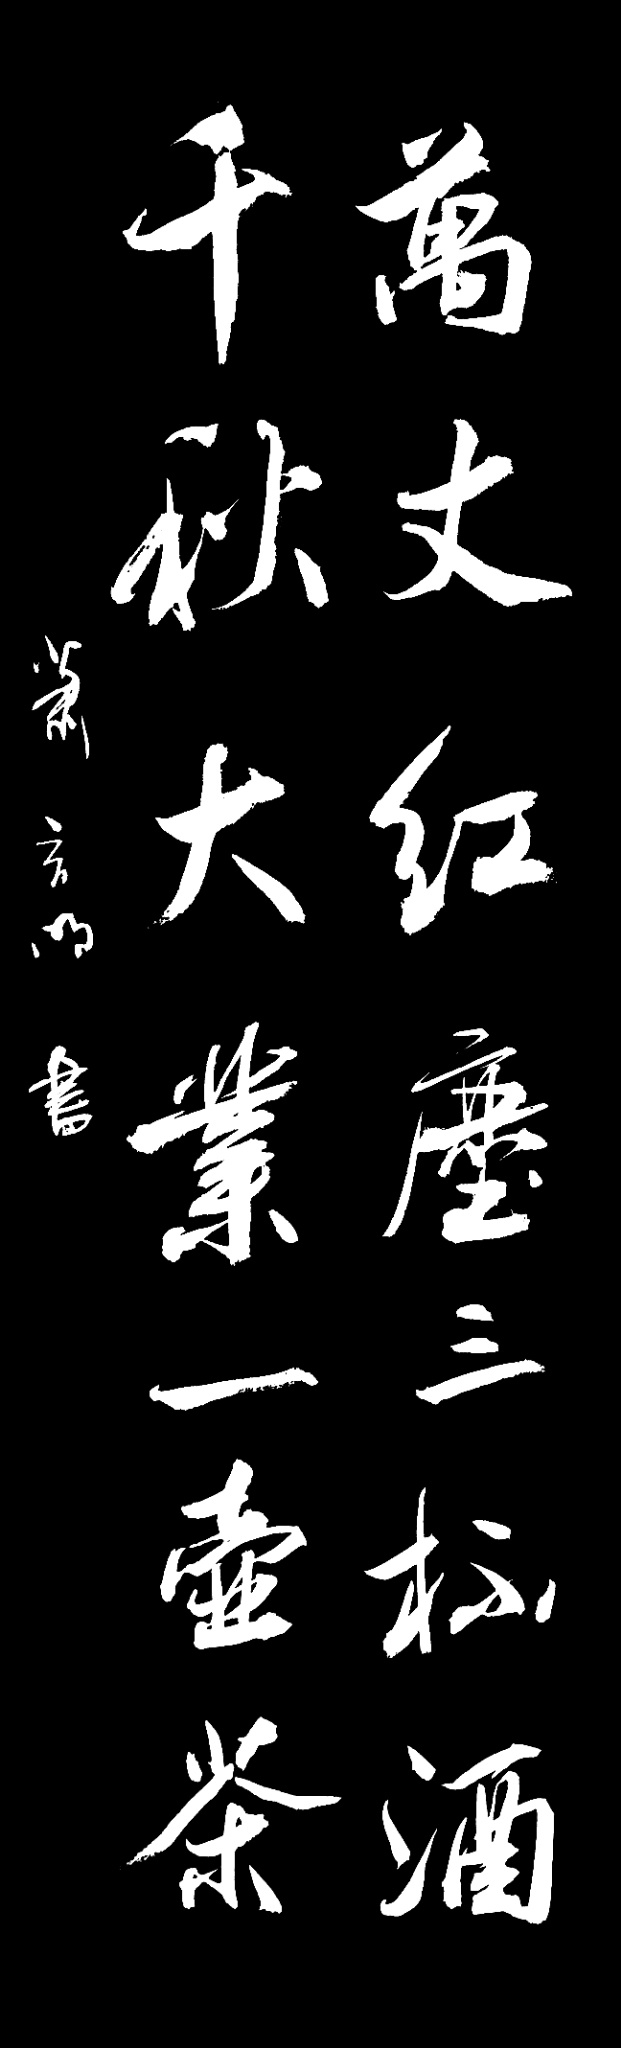 萬丈红塵三杯酒
千秋大業一壺茶
蕭言明書